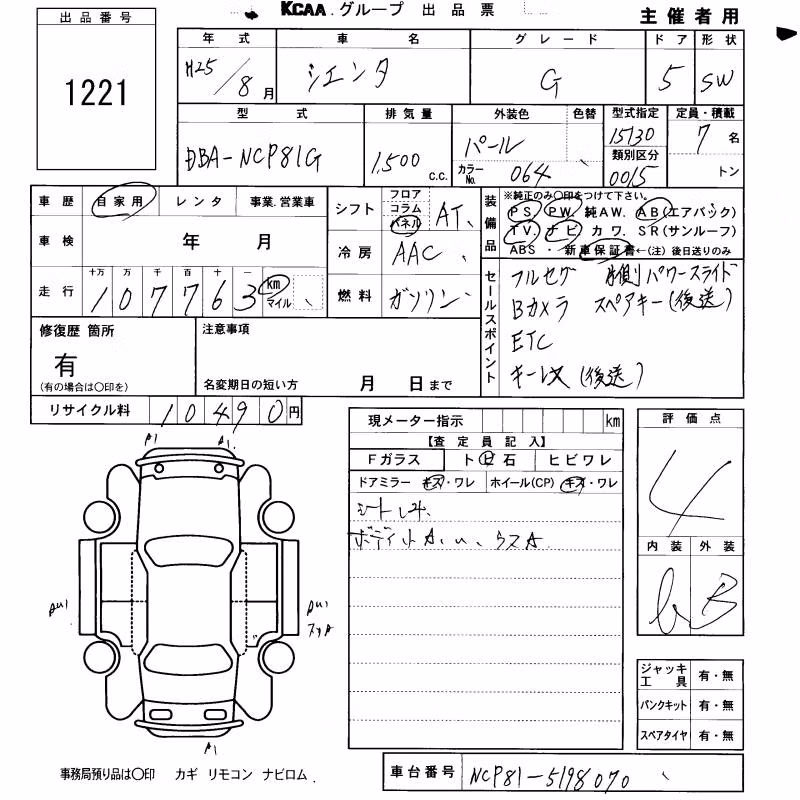 KCAA.グループ 出品票
主催者用
出品番号
1221
年式 車名 グレード ドア 形状
H25/8月 シエンタ G 5 SW
型式 排気量 外装色 色替 型式指定 定員・積載
DBA-NCP81G 1,500 c.c. パール 15730 7名
カラーNo. 064 類別区分 0015 トン
車歴 自家用 レンタ 事業.営業車
車検 年 月
走行 十万 万 千 百 十 一
107763 km マイル
シフト フロア コラム パネル AT
冷房 AAC
燃料 ガソリン
装備品
※純正のみ○印をつけて下さい。
PS. PW. 純AW. AB(エアバック)
TV. ナビ カワ. SR(サンルーフ)
ABS・新車保証書←(注)後日送りのみ
セールスポイント
フルセグ パワースライド
Bカメラ スペアキー(後送)
ETC
キーレス(後送)
修復歴 箇所
有
(有の場合は○印を)
注意事項
名変期日の短い方 月 日まで
リサイクル料 10490円
現メーター指示 km
【査定員記入】
Fガラス ト ビ 石 ヒビワレ
ドアミラー キズ・ワレ ホイール(CP) キズ・ワレ
シート
ボディ ウスA
評価点
4
内装 外装
B
A1 A1
AU1
AU1
A1
ジャッキ工具 有・無
パンクキット 有・無
スペアタイヤ 有・無
事務局預り品は○印 カギ リモコン ナビロム.
車台番号 NCP81-5198070